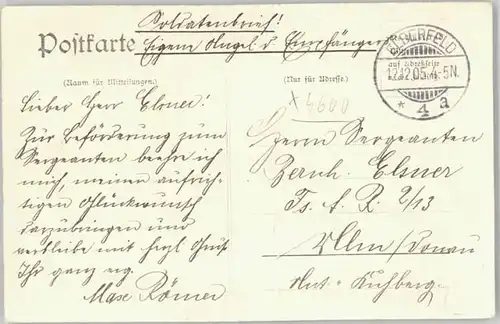 Soldatenbrief!
Postkarte Eigene Angel. d. Empfängers
(Raum für Mitteilungen.)
(Nur für Adresse.)
ELBERFELD
12.12.05. 4-5N.
* 4 a
4600
Lieber Herr Elsner!
Zur Beförderung zum
Sergeanten beehre ich
mich, meinen aufrich-
tigen Glückwunsch
darzubringen und
verbleibe mit herzl. Gruß
Ihr ganz erg.
Max Römer
Herrn Sergeanten
Bernh. Elsner
Fs. A. R. 2/13
Ulm/Donau
Unt. Kuhberg.